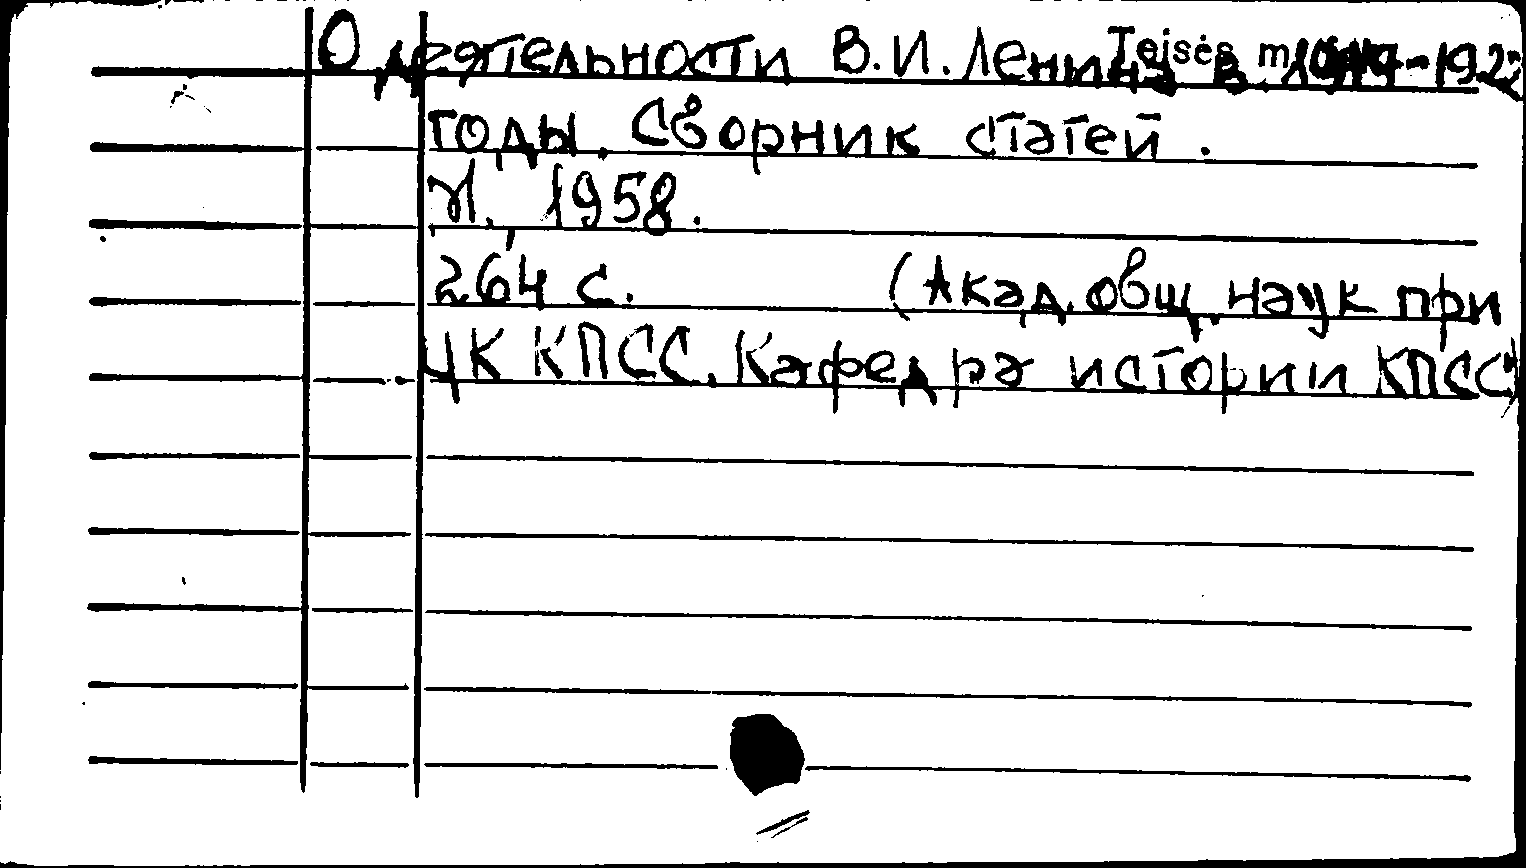 О деятельности В.И. Ленина в -1922
Teisės m.
годы. Сборник статей.
М., 1958.
264 с. (Акад. общ. наук при
ЦК КПСС. Кафедра истории КПСС)